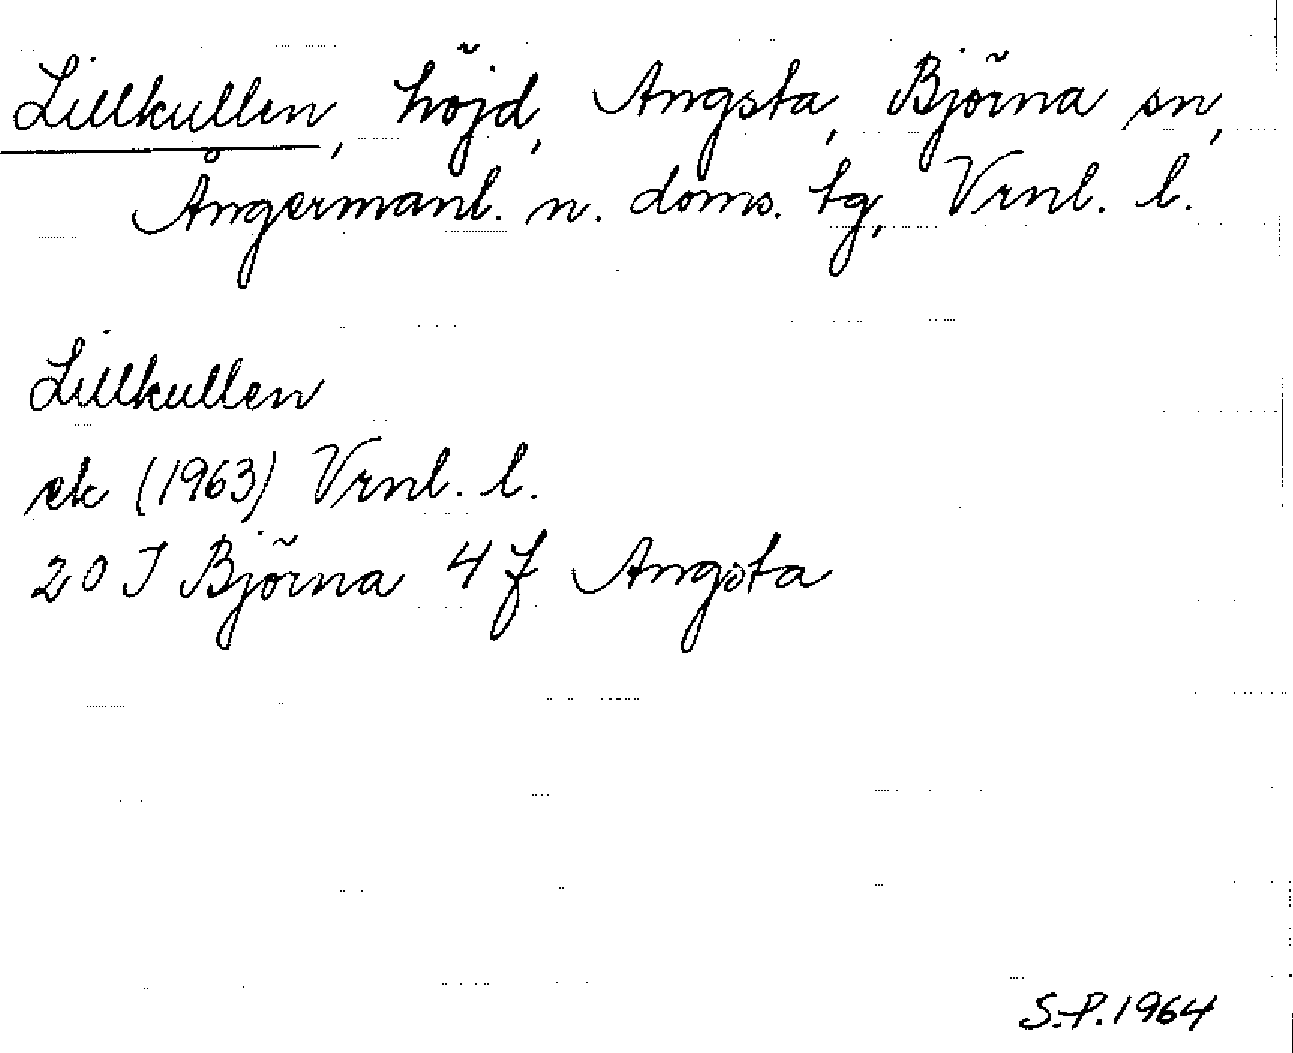 Lillkullen, höjd, Angsta, Björna sn,
Ångermanl. n. doms. tg, Vrnl. l.
Lillkullen
ek (1963) Vrnl. l.
20 J Björna 4 f Angsta
S.P. 1964